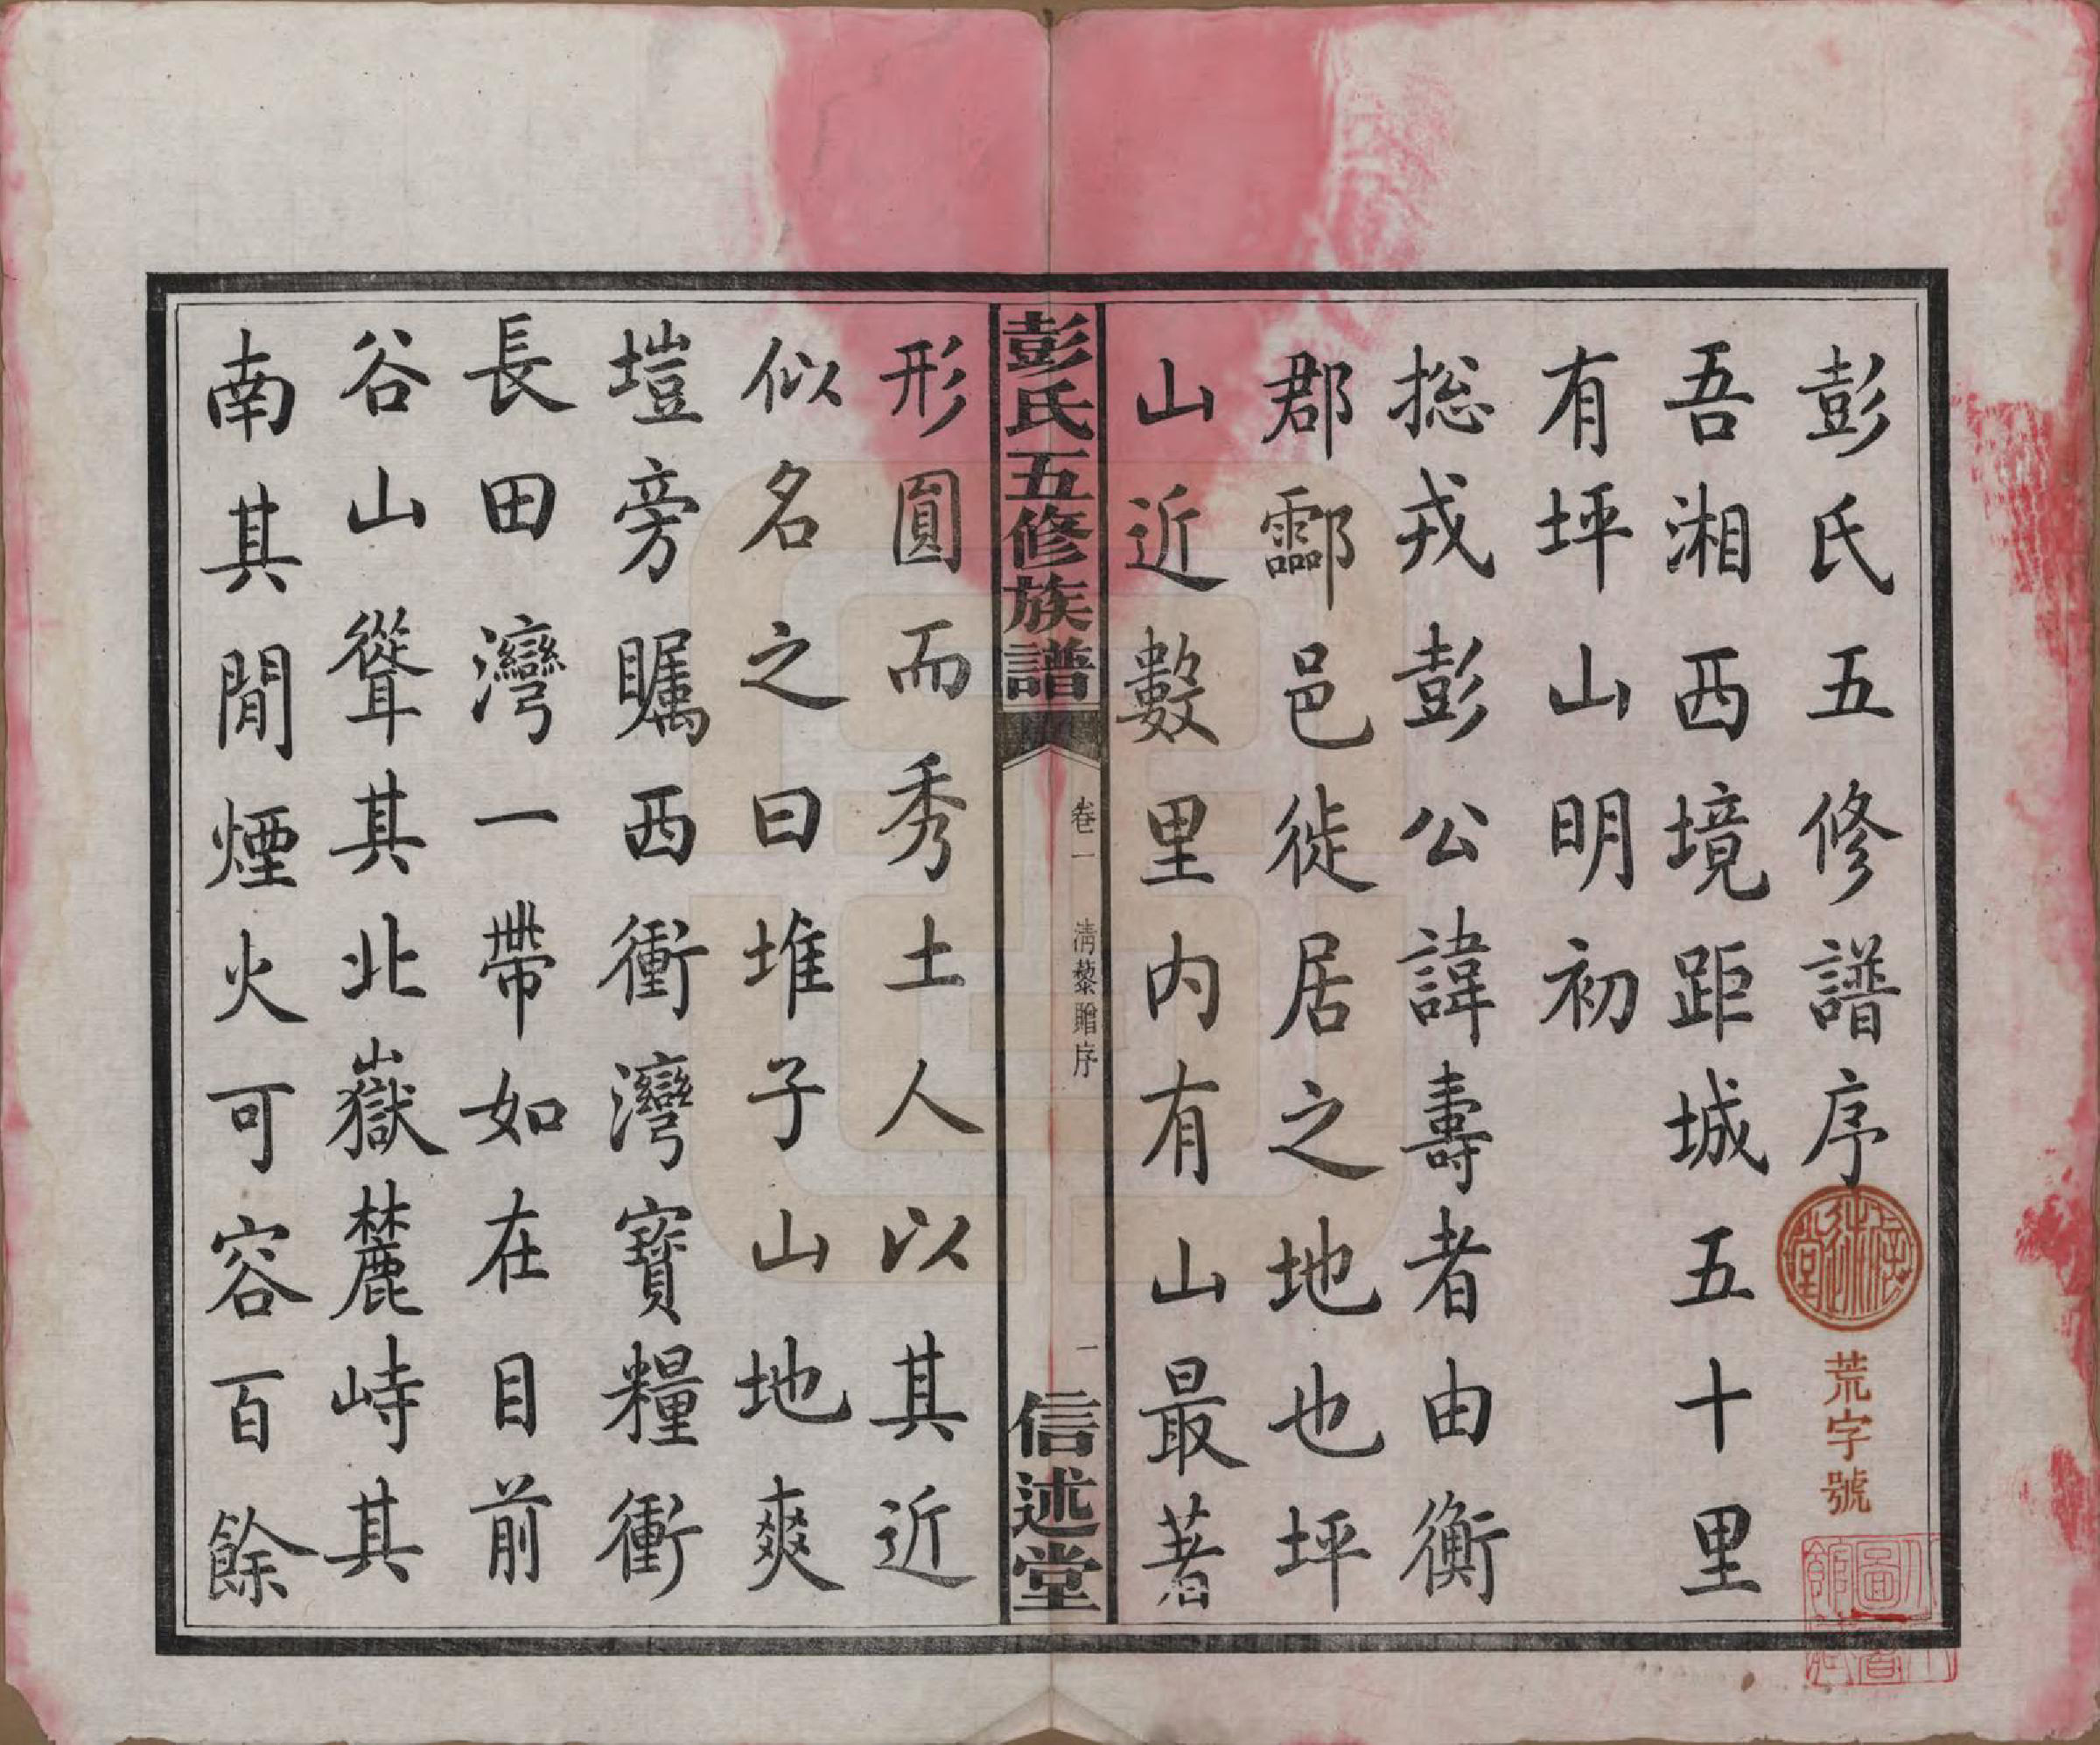 彭氏五修譜序
信述堂
荒字號
吾湘西境距城五十里
有坪山明初
捴戎彭公諱壽者由衡
郡酃邑徙居之地也坪
山近數里内有山最著
彭氏五修族譜
卷一
清藜贈序
一
信述堂
形圓而秀土人以其近
似名之曰堆子山地爽
塏旁矚西衝灣寶糧衝
長田灣一帶如在目前
谷山聳其北嶽麓峙其
南其閒煙火可容百餘